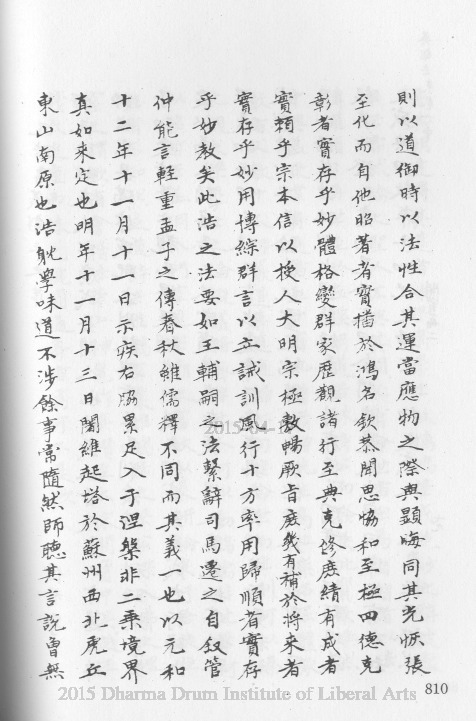 則以道御時以法性合其運當應物之際與顯晦同其光恢張
至化而自他昭著者實播於鴻名欽恭聞思協和至極四德克
彰者實存乎妙體格變群家歷觀諸行至典克修庶績有成者
實賴乎宗本信以授人大明宗極敷暢厥旨庶幾有補於將來者
實存乎妙用博綜群言以立誡訓風行十方率用歸順者實存
乎妙教矣此浩之法要如王輔嗣之法繫辭司馬遷之自叙管
仲能言輕重孟子之傳春秋雖儒釋不同而其義一也以元和
十二年十一月十一日示疾右脇累足入于涅槃非二乘境界
真如來定也明年十一月十三日闍維起塔於蘇州西北虎丘
東山南原也浩躭學味道不涉餘事常隨然師聽其言說曾無
810
2015-04-
2015 Dharma Drum Institute of Liberal Arts